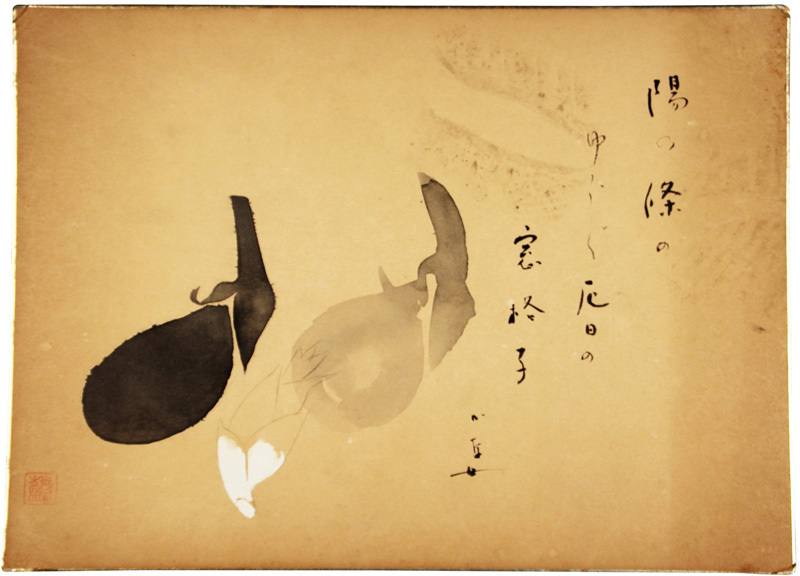 陽の條の
ゆらぐ厄日の
窓格子
かな女